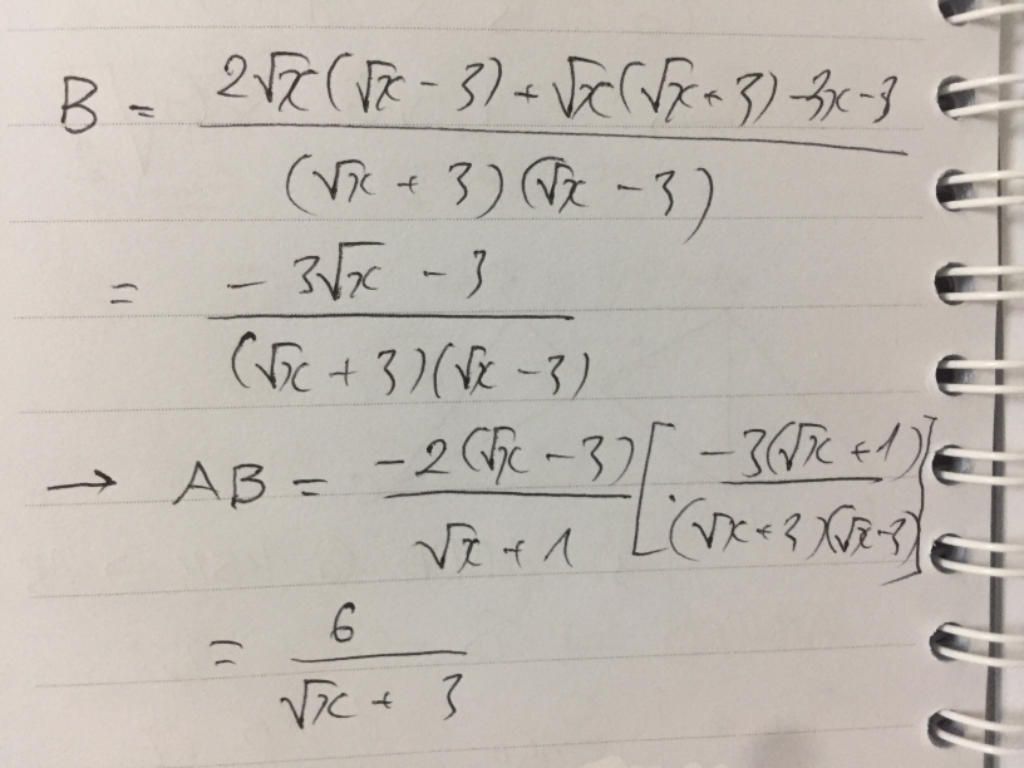 B = \frac{2\sqrt{x}(\sqrt{x} - 3) + \sqrt{x}(\sqrt{x} + 3) - 3x - 3}{(\sqrt{x} + 3)(\sqrt{x} - 3)}
= \frac{-3\sqrt{x} - 3}{(\sqrt{x} + 3)(\sqrt{x} - 3)}
→ AB = \frac{-2(\sqrt{x} - 3)}{\sqrt{x} + 1} \left[ \cdot \frac{-3(\sqrt{x} + 1)}{(\sqrt{x} + 3)(\sqrt{x} - 3)} \right]
= \frac{6}{\sqrt{x} + 3}